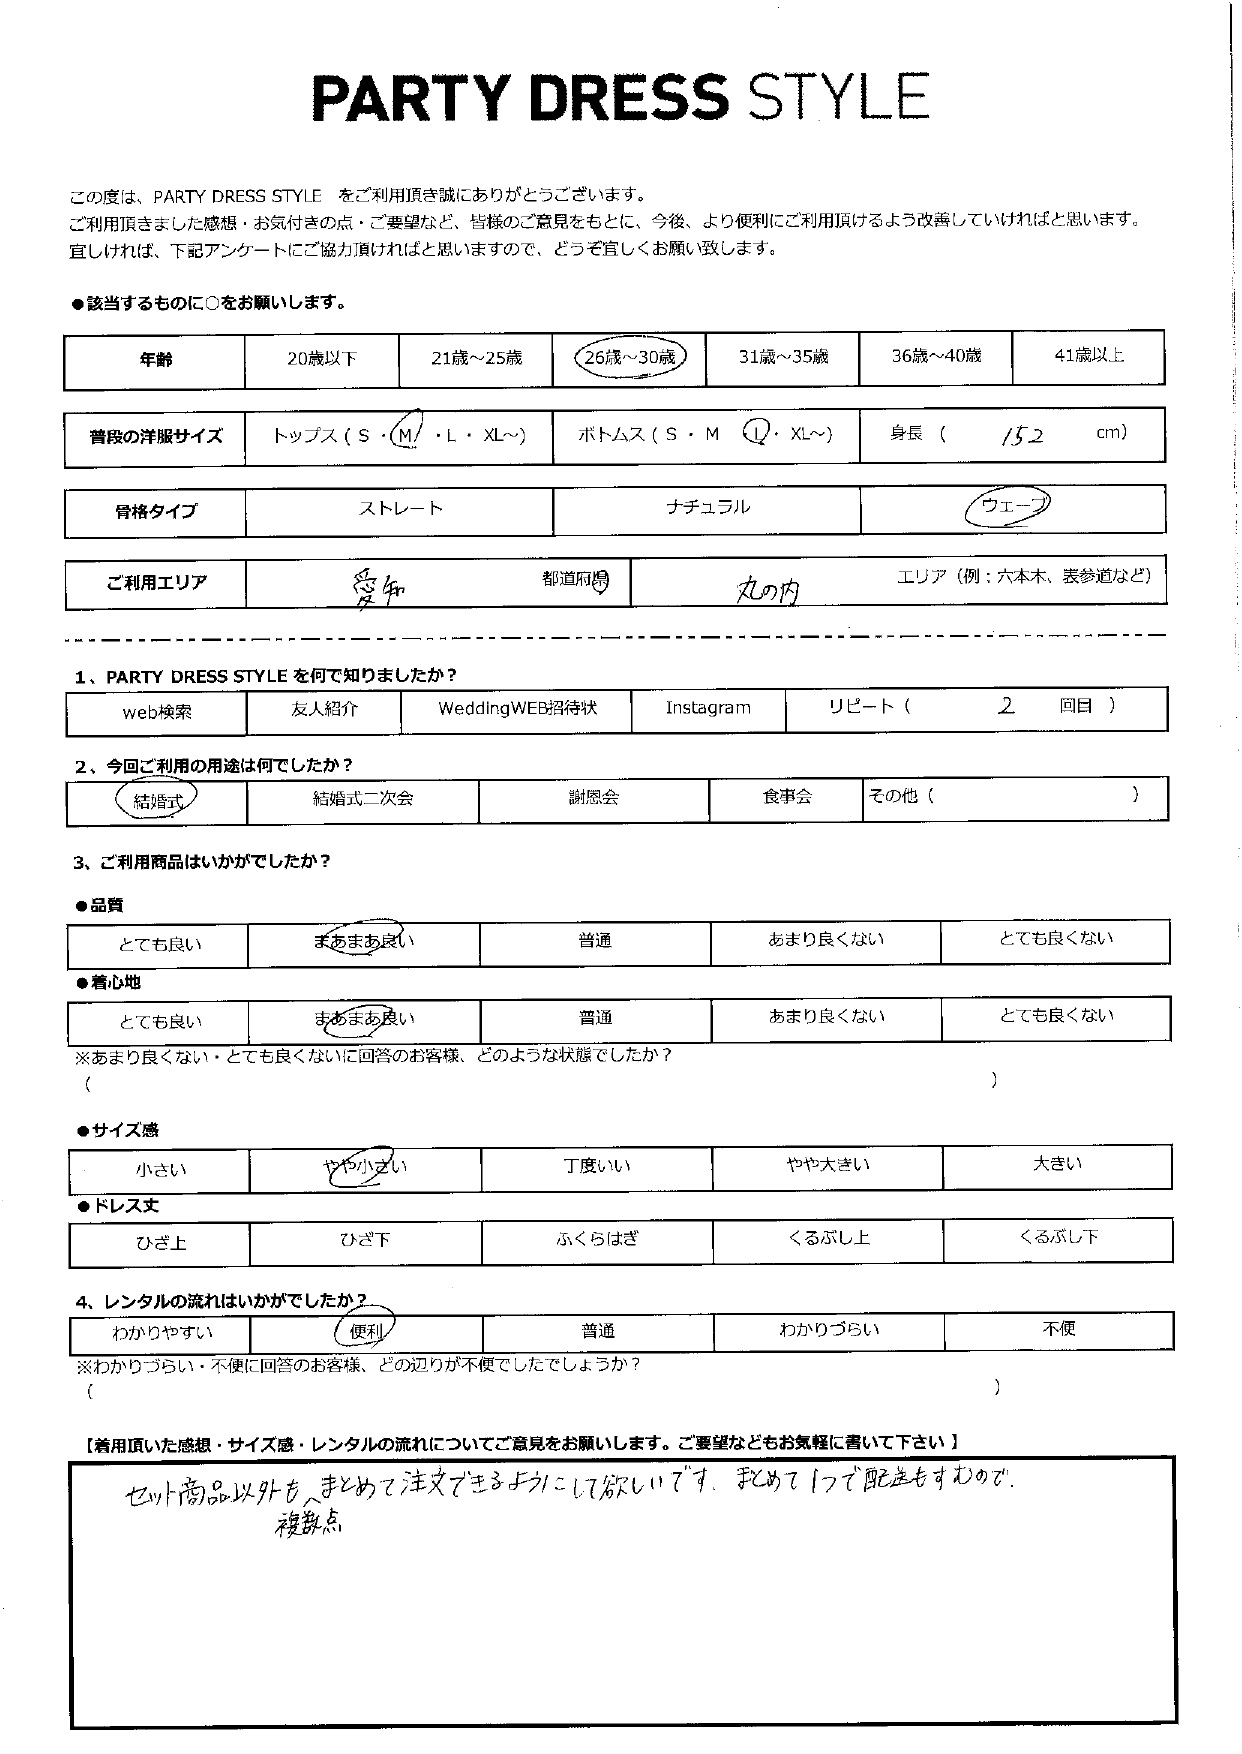 PARTY DRESS STYLE
この度は、PARTY DRESS STYLE をご利用頂き誠にありがとうございます。
ご利用頂きました感想・お気付きの点・ご要望など、皆様のご意見をもとに、今後、より便利にご利用頂けるよう改善していければと思います。
宜しければ、下記アンケートにご協力頂ければと思いますので、どうぞ宜しくお願い致します。
●該当するものに○をお願いします。
年齢 20歳以下 21歳～25歳 26歳～30歳 31歳～35歳 36歳～40歳 41歳以上
普段の洋服サイズ トップス ( S ・ M ・ L ・ XL～) ボトムス ( S ・ M L ・ XL～) 身長 ( 152 cm)
骨格タイプ ストレート ナチュラル ウェーブ
ご利用エリア 愛知 都道府県 丸の内 エリア（例：六本木、表参道など）
1、PARTY DRESS STYLE を何で知りましたか？
web検索 友人紹介 WeddingWEB招待状 Instagram リピート ( 2 回目 )
2、今回ご利用の用途は何でしたか？
結婚式 結婚式二次会 謝恩会 食事会 その他 ( )
3、ご利用商品はいかがでしたか？
●品質
とても良い まあまあ良い 普通 あまり良くない とても良くない
●着心地
とても良い まあまあ良い 普通 あまり良くない とても良くない
※あまり良くない・とても良くないに回答のお客様、どのような状態でしたか？
( )
●サイズ感
小さい やや小さい 丁度いい やや大きい 大きい
●ドレス丈
ひざ上 ひざ下 ふくらはぎ くるぶし上 くるぶし下
4、レンタルの流れはいかがでしたか？
わかりやすい 便利 普通 わかりづらい 不便
※わかりづらい・不便に回答のお客様、どの辺りが不便でしたでしょうか？
( )
【着用頂いた感想・サイズ感・レンタルの流れについてご意見をお願いします。ご要望などもお気軽に書いて下さい 】
セット商品以外も、まとめて注文できるようにして欲しいです. まとめて1つで配送もすむので.
複数点